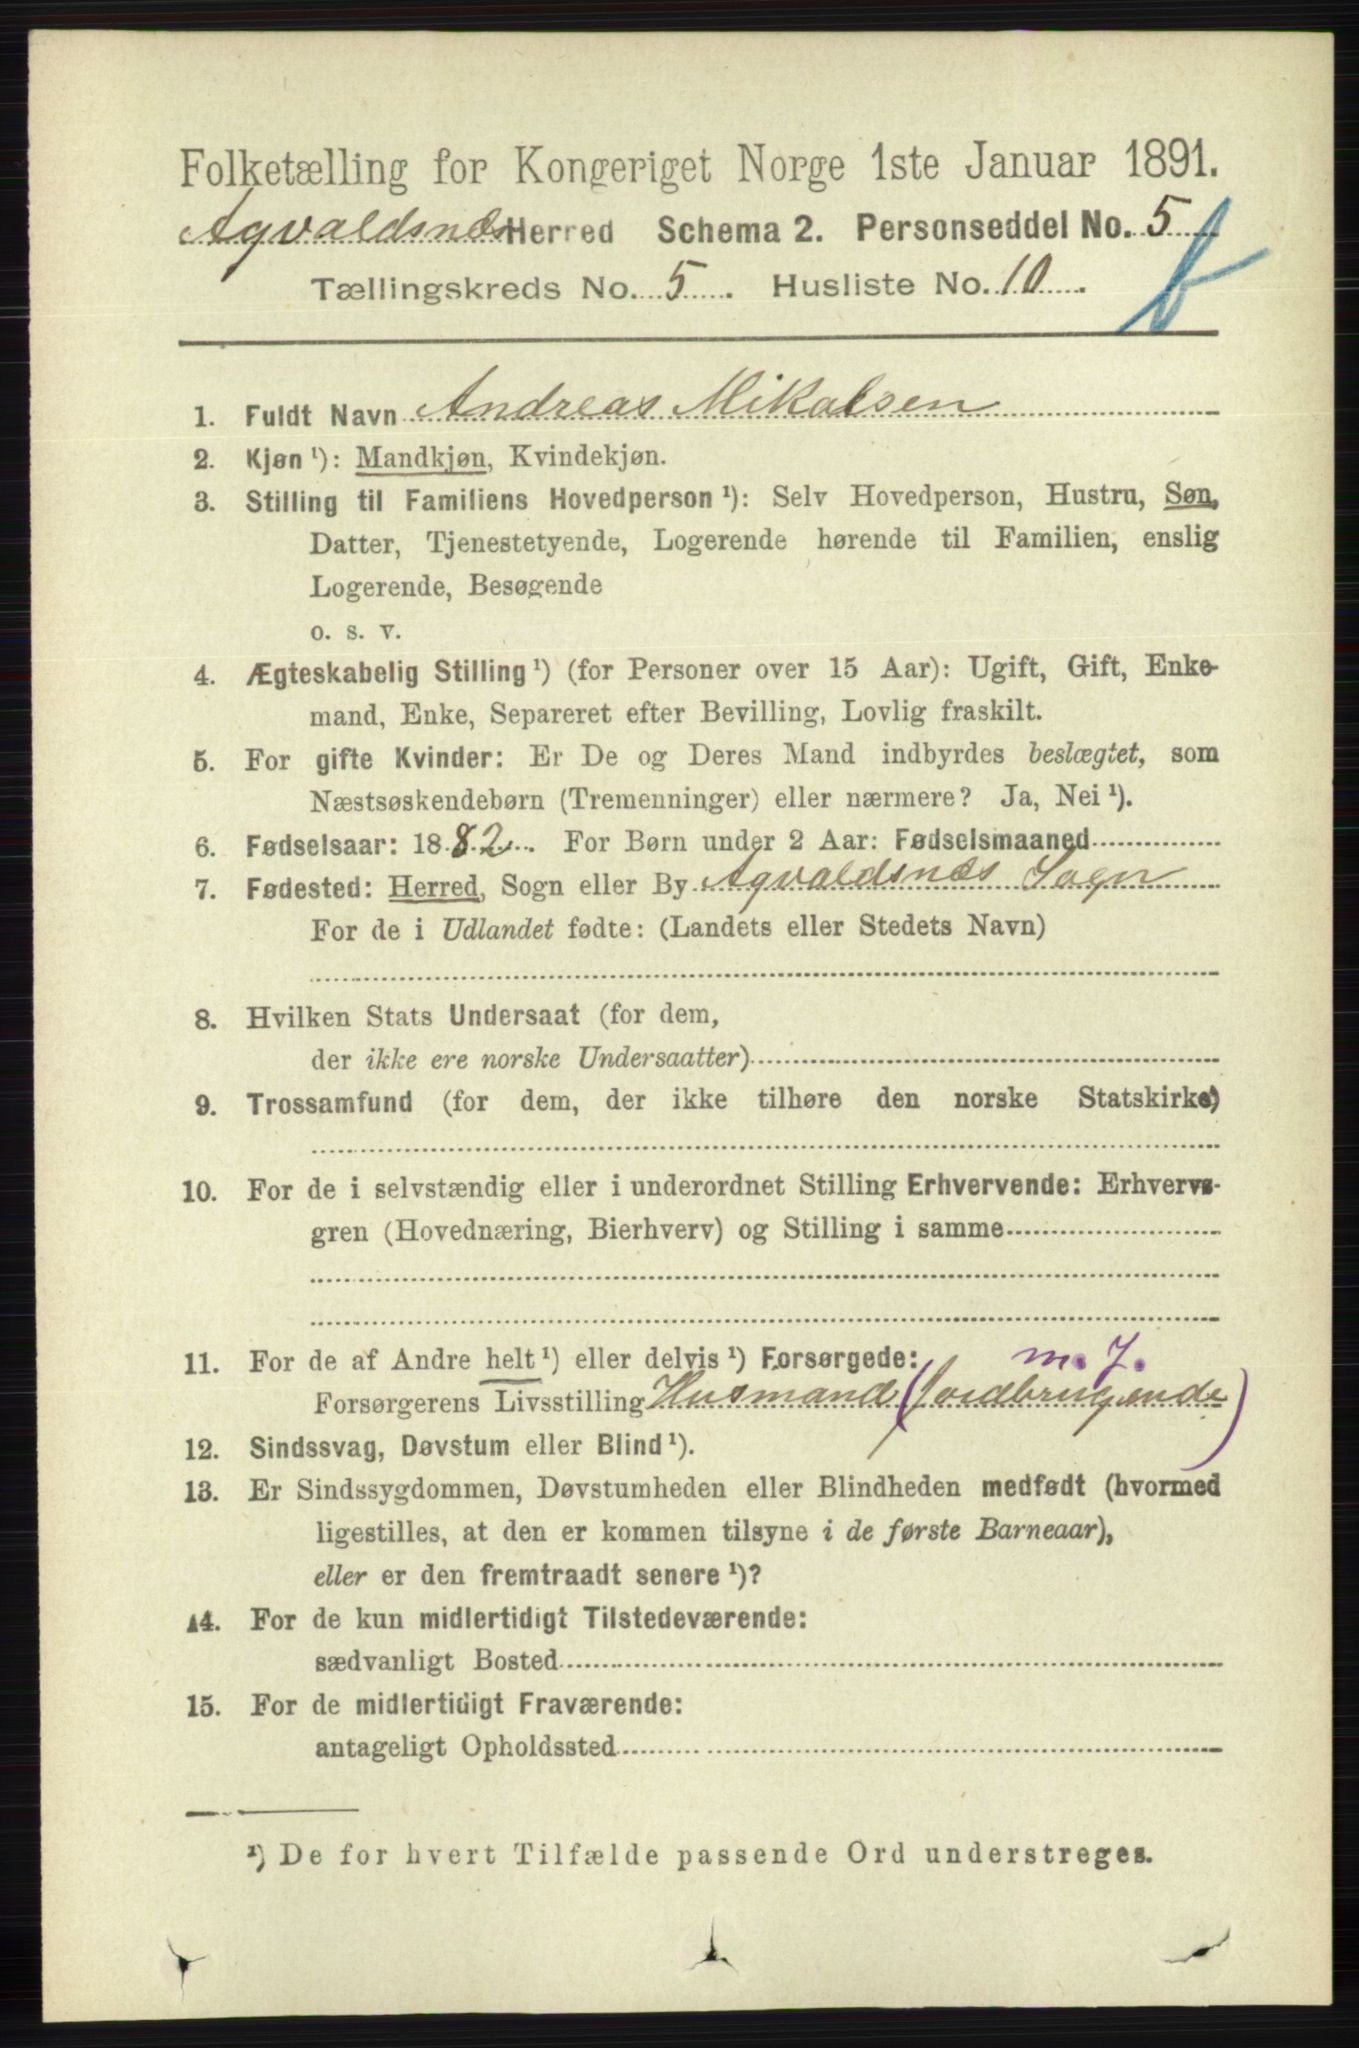 Folketælling for Kongeriget Norge 1ste Januar 1891.
Agvaldsnæs Herred Schema 2. Personseddel No. 5
Tællingskreds No. 5. Husliste No. 10.
b
1. Fuldt Navn Andreas Mikalsen
2. Kjøn ¹): Mandkjøn, Kvindekjøn.
3. Stilling til Familiens Hovedperson ¹): Selv Hovedperson, Hustru, Søn,
Datter, Tjenestetyende, Logerende hørende til Familien, enslig
Logerende, Besøgende
o. s. v.
4. Ægteskabelig Stilling ¹) (for Personer over 15 Aar): Ugift, Gift, Enke-
mand, Enke, Separeret efter Bevilling, Lovlig fraskilt.
5. For gifte Kvinder: Er De og Deres Mand indbyrdes beslægtet, som
Næstsøskendebørn (Tremenninger) eller nærmere? Ja, Nei ¹).
6. Fødselsaar: 1882. For Børn under 2 Aar: Fødselsmaaned
7. Fødested: Herred, Sogn eller By Agvaldsnæs Sogn
For de i Udlandet fødte: (Landets eller Stedets Navn)
8. Hvilken Stats Undersaat (for dem,
der ikke ere norske Undersaatter)
9. Trossamfund (for dem, der ikke tilhøre den norske Statskirke)
10. For de i selvstændig eller i underordnet Stilling Erhvervende: Erhvervs-
gren (Hovednæring, Bierhverv) og Stilling i samme
11. For de af Andre helt ¹) eller delvis ¹) Forsørgede: m. J.
Forsørgerens Livsstilling Husmand (Jordbrugende)
12. Sindssvag, Døvstum eller Blind ¹).
13. Er Sindssygdommen, Døvstumheden eller Blindheden medfødt (hvormed
ligestilles, at den er kommen tilsyne i de første Barneaar),
eller er den fremtraadt senere ¹)?
14. For de kun midlertidigt Tilstedeværende:
sædvanligt Bosted
15. For de midlertidigt Fraværende:
antageligt Opholdssted
¹) De for hvert Tilfælde passende Ord understreges.